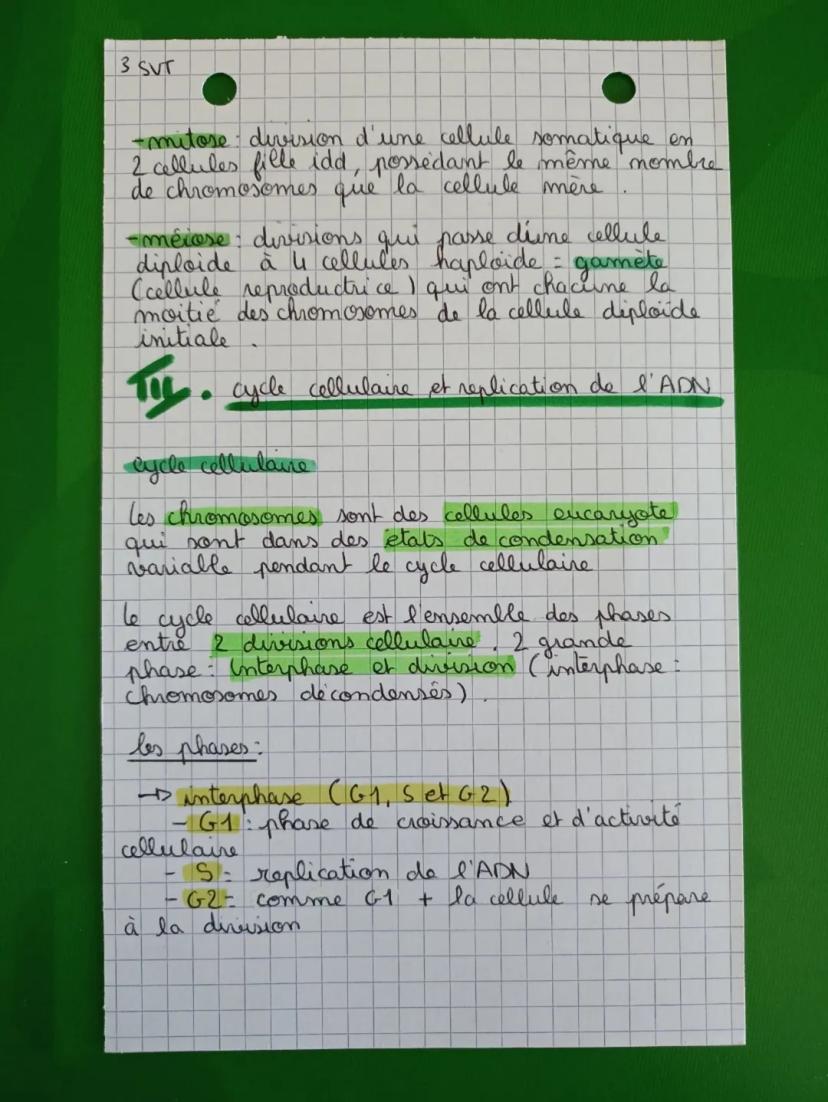 3 SVT
- mitose : division d'une cellule somatique en
2 cellules fille idd, possédant le même nombre
de chromosomes que la cellule mère .
- méiose : divisions qui passe d'une cellule
diploide à 4 cellules haploïde = gamète
(cellule reproductrice) qui ont chacune la
moitié des chromosomes de la cellule diploïde
initiale .
cycle cellulaire et replication de l'ADN
cycle cellulaire
les chromosomes sont des cellules eucaryote
qui sont dans des états de condensation
variable pendant le cycle cellulaire
le cycle cellulaire est l'ensemble des phases
entre 2 divisions cellulaire . 2 grande
phase : interphase et division (interphase :
chromosomes décondensés) .
les phases :
→ interphase (G1, S et G2)
- G1 : phase de croissance et d'activité
cellulaire
- S = replication de l'ADN
- G2 = comme G1 + la cellule se prépare
à la division